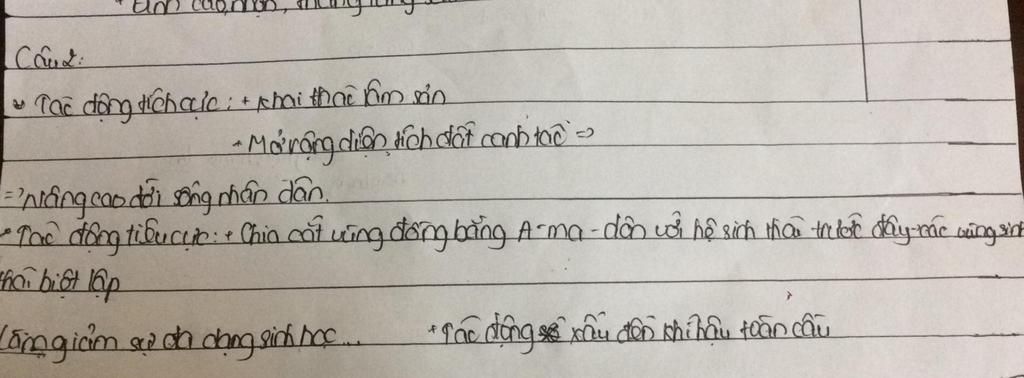 + tình
Câu 2:
Tác động tích cực: + khai thác lâm sản
+ Mở rộng diện tích đất canh tác =>
=> Nâng cao đời sống nhân dân.
Tác động tiêu cực: + Chia cắt vùng đồng bằng A-ma-dôn với hệ sinh thái trước đây-các vùng sinh
thái biệt lập
Làm giảm sự đa dạng sinh học... + Tác động xấu đến khí hậu toàn cầu